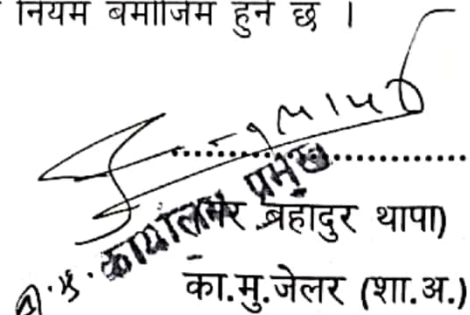 नियम बमोजिम हुने छ ।
कार्यालय प्रमुख
बहादुर थापा)
का.मु.जेलर (शा.अ.)